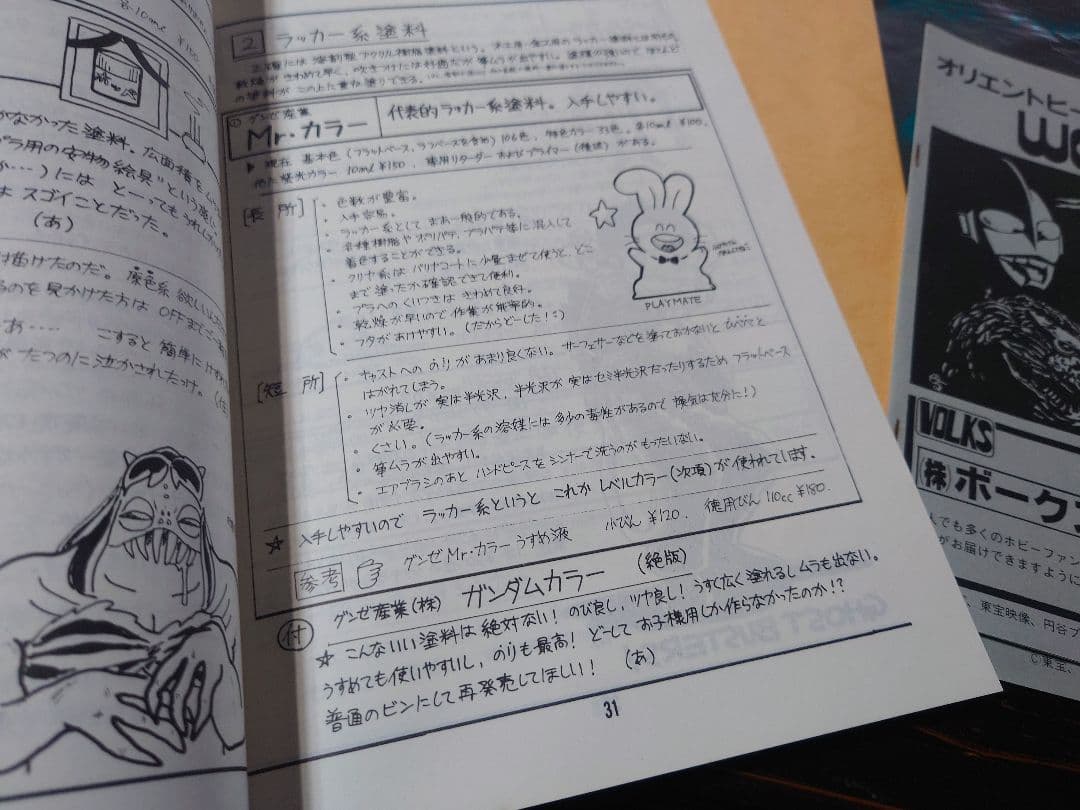 各10ml ¥150
がなかった塗料。広面積を
ラ用の安物絵具"という感じ
)には とーってもうれし
は スゴイことだった。
(あ)
は描けたのだ。廃色系 欲しい
るのを見かけた方は OFFまでご
あ‥‥ こすると 簡単に
が たつのに泣かされたっけ。
2 ラッカー系塗料
の塗料が この上に重ね塗りできる。
① グンゼ産業
Mr.カラー
代表的ラッカー系塗料。入手しやすい。
▶ 現在 基本色(フラットベース、ラフベースを含め)106色、特色カラー33色。各10ml ¥100.
他に蛍光カラー 10ml ¥150、専用リターダー およびプライマー(種済)がある。
[長所]
・色数が豊富。
・入手容易。
・ラッカー系として まあ一般的である。
・各種樹脂や ポリパテ、プラパテ等に混入して
着色することができる。
・クリヤ系は バリヤコートに少量まぜて使うと、どこ
まで塗ったか確認できて便利。
・プラへのくいつきは きわめて良好。
・乾燥が早いので 作業が能率的。
・フタがあけやすい。(だからどーした!:)
PLAYMATE
[短所]
・キャストへの のりが あまり良くない。サーフェサーなどを塗っておかないと
はがれてしまう。
・ツヤ消しが 実は半光沢、半光沢が 実はセミ半光沢だったりするため フラットベース
が必要。
・くさい。(ラッカー系の溶媒には 多少の毒性があるので 換気は充分に!)
・筆ムラが出やすい。
・エアブラシのあと ハンドピースを シンナーで洗うのが もったいない。
☆ 入手しやすいので ラッカー系というと これか レベルカラー(次項)が使われてします。
参考 グンゼ Mr.カラー うすめ液 小びん ¥120. 徳用びん 110cc ¥180.
付 グンゼ産業(株) ガンダムカラー (絶版)
☆ こんないい塗料は絶対ない! のび良し、ツヤ良し! うすく広く塗れるしムラも出ない。
うすめても使いやすいし、のりも最高! どーして お子様用しか作らなかったのか!?
普通のビンにして再発売してほしい! (あ)
31
オリエントヒー
VOLKS
(株)ボーク
人でも多くのホビーファン
がお届けできますように
、東宝映像、円谷プ
©東宝、